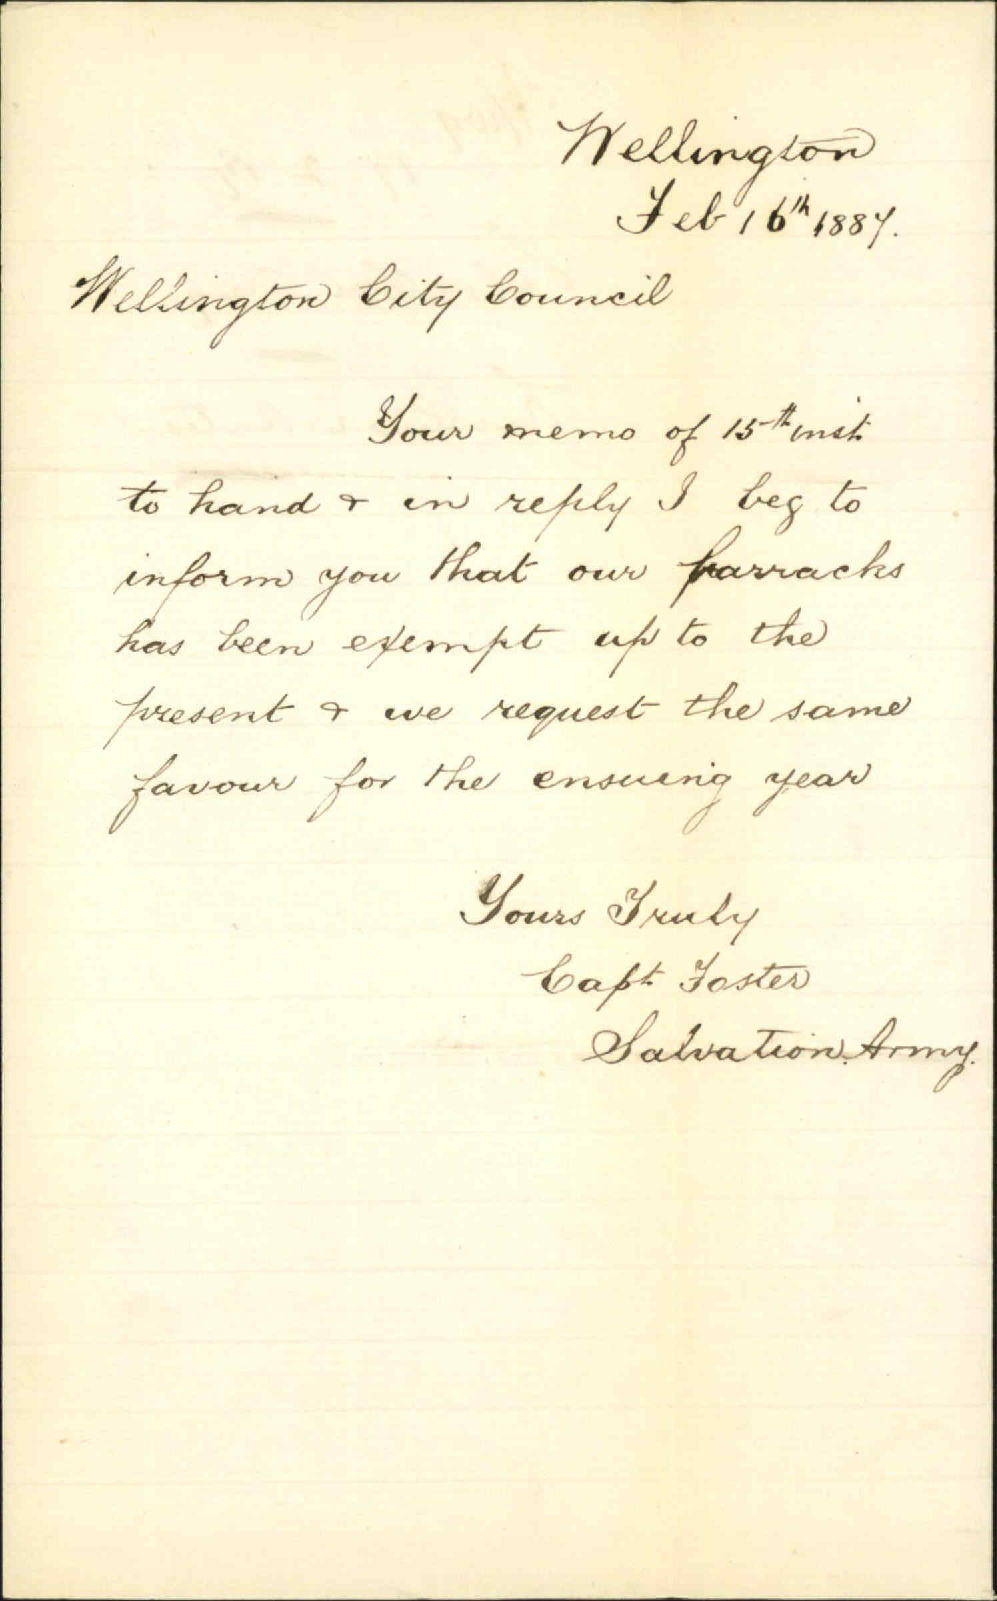 Wellington
Feb 16th 1887.
Wellington City Council
Your memo of 15th inst
to hand & in reply I beg to
inform you that our barracks
has been exempt up to the
present & we request the same
favour for the ensuing year
Yours Truly
Capt Foster
Salvation Army.